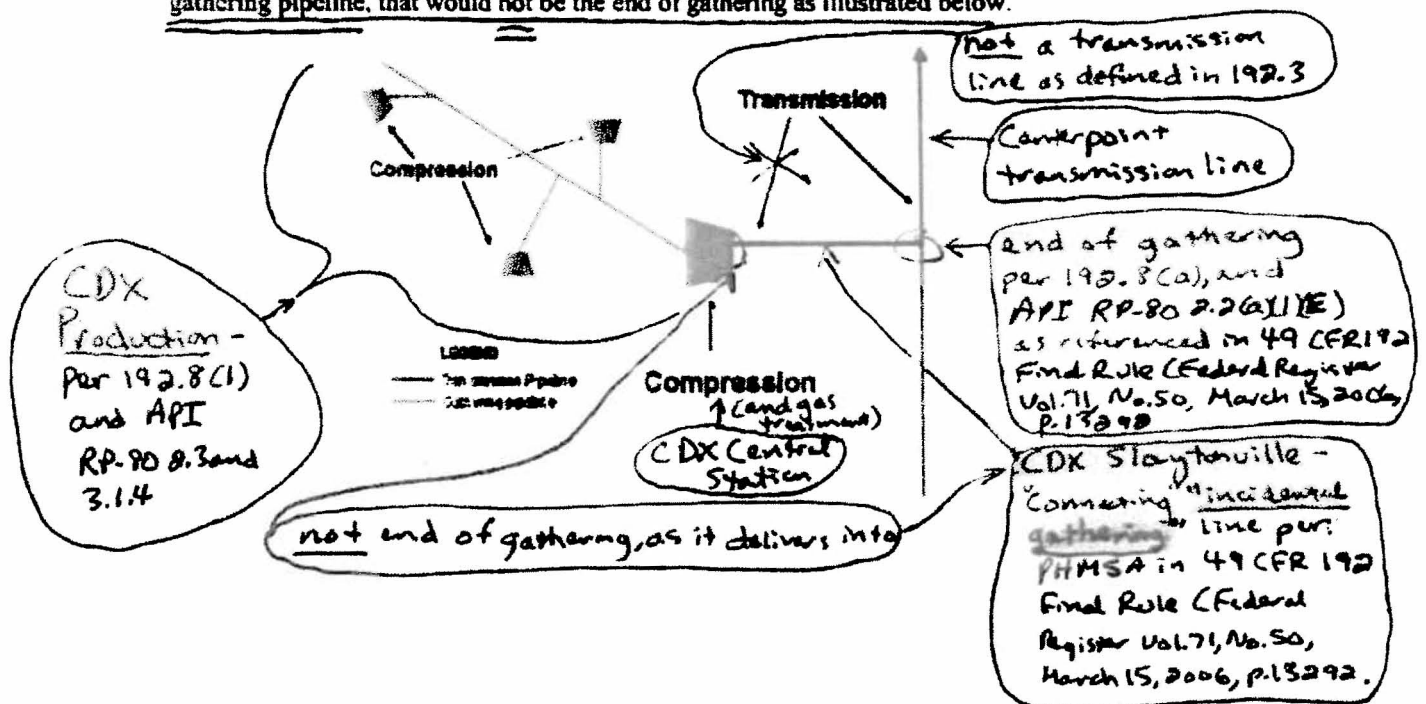 gathering pipeline, that would not be the end of gathering as illustrated below.
not a transmission
line as defined in 192.3
Transmission
Centerpoint
transmission line
Compression
end of gathering
per 192.8(a), and
API RP-80 2.2(a)(1)(E)
as referenced in 49 CFR 192
Final Rule (Federal Register
Vol.71, No.50, March 15, 2006,
p.13292
CDX
Production -
per 192.8(1)
and API
RP-80 2.3 and
3.1.4
LEGEND
Pipeline
Compression
(and gas
treatment)
CDX Central
Station
not end of gathering, as it delivers into
CDX Slaytonville -
"Connecting" "incidental
gathering" line per:
PHMSA in 49 CFR 192
Final Rule (Federal
Register Vol.71, No.50,
March 15, 2006, p.13292.